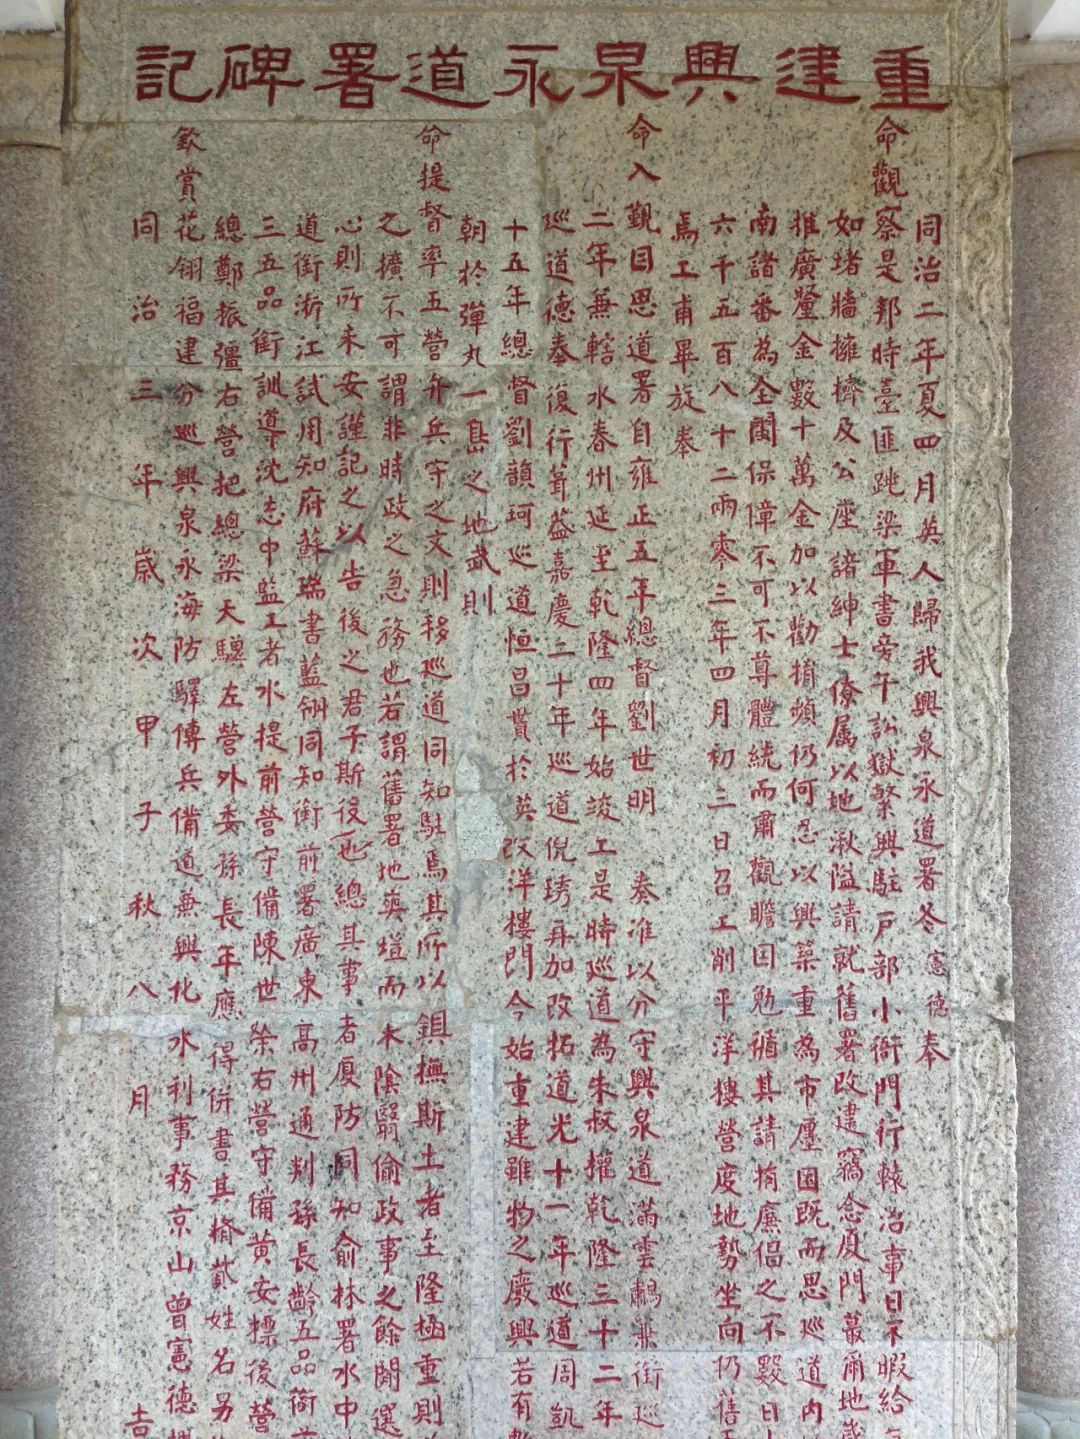 重建興泉永道署碑記
同治二年夏四月英人歸我興泉永道署冬憲德奉
命觀察是邦時臺匪跳梁軍書旁午訟獄繁興駐戶部小衙門行轅治事日不暇給
如堵牆擁擠及公座諸紳士僚屬以地湫隘請就舊署改建竊念廈門蕞爾地
推廣釐金數十萬金加以勸捐頻仍何忍以興築重為市廛困既而思巡道內
南諸番為全閩保障不可不尊體統而肅觀瞻因勉循其請捐廉倡之不數日
六千五百八十二兩零三年四月初三日召工削平洋樓營度地勢坐向仍舊
焉工甫畢旋奉
命入覲因思道署自雍正五年總督劉世明 奏准以分守興泉道滿雲鷫兼銜巡
二年兼轄水春州延至乾隆四年始竣工是時巡道為朱叔權乾隆三十二年
巡道德泰復行葺葢嘉慶二十年巡道倪琇再加改拓道光十一年巡道周凱
十五年總督劉韻珂巡道恒昌貰於英改洋樓門今始重建雖物之廢興若有
朝於彈丸一島之地武則
命提督率五營弁兵守之文則移巡道同知駐焉其所以鎮撫斯土者至隆極重則
之擴不可謂非時政之急務也若謂舊署地爽塏而木陰翳偷政事之餘閒選
心則所未安謹記之以告後之君子斯役也總其事者廈防同知俞林署水中
道銜浙江試用知府蘇瑞書藍翎同知銜前署廣東高州通判孫長齡五品銜
三五品銜訓導沈志中監工者水提前營守備陳世榮右營守備黃安標後營
總鄭振彊右營把總梁天驄左營外委孫長年應得併書其捐貲姓名另
欽賞花翎福建分巡興泉永海防驛傳兵備道兼興化水利事務京山曾憲德
同治三年歲次甲子秋八月吉